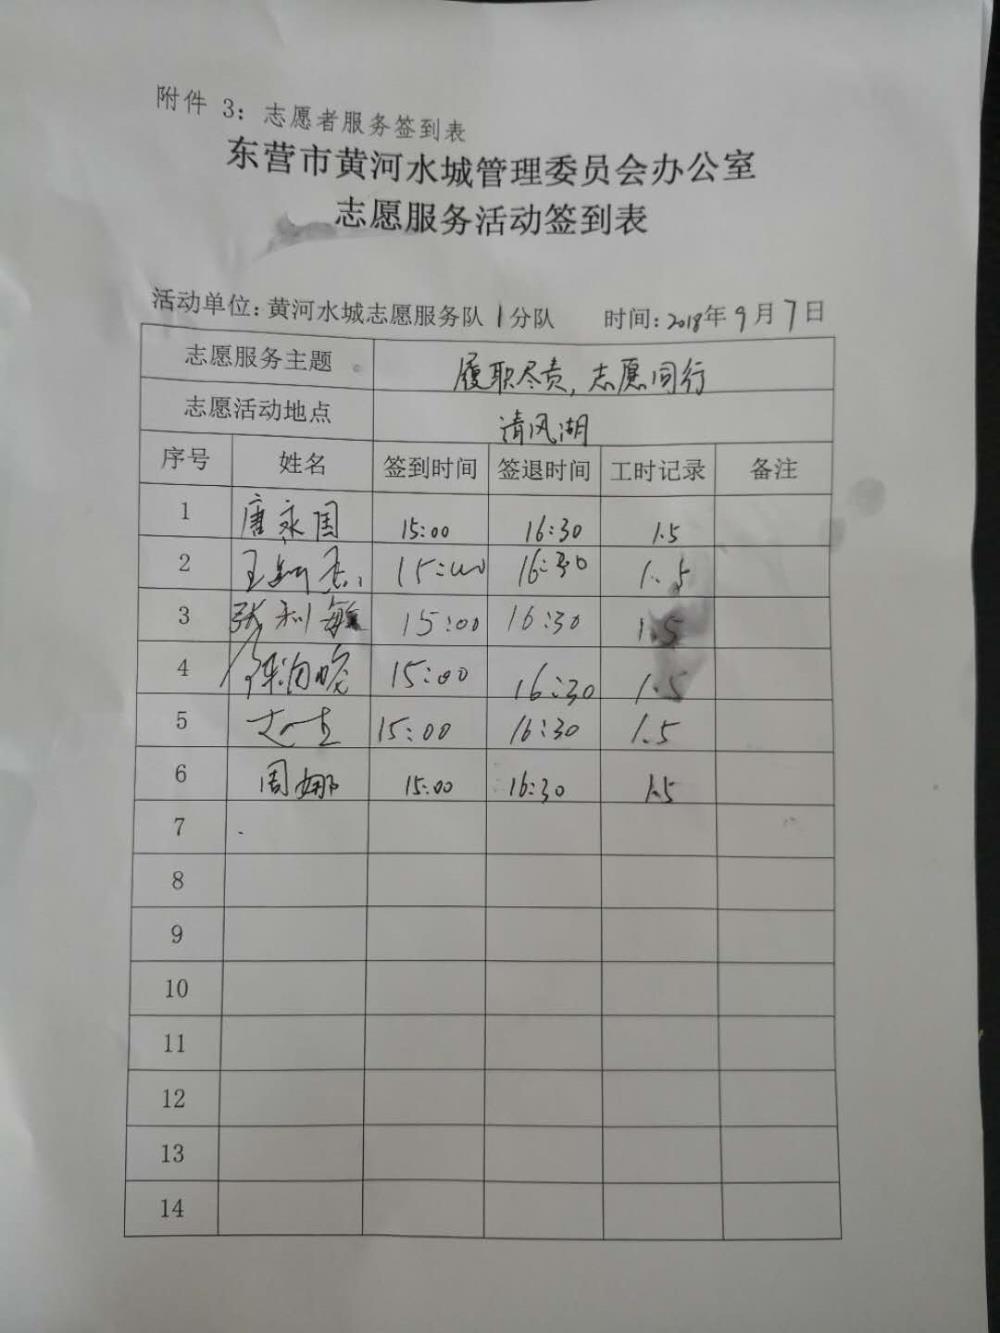 附件 3：志愿者服务签到表
东营市黄河水城管理委员会办公室
志愿服务活动签到表
活动单位：黄河水城志愿服务队 1分队 时间：2018年9月7日
志愿服务主题 履职尽责，志愿同行
志愿活动地点 清风湖
序号 姓名 签到时间 签退时间 工时记录 备注
1 唐永国 15:00 16:30 1.5
2 15:00 16:30 1.5
3 张利敏 15:00 16:30 1.5
4 15:00 16:30 1.5
5 15:00 16:30 1.5
6 周娜 15:00 16:30 1.5
7
8
9
10
11
12
13
14